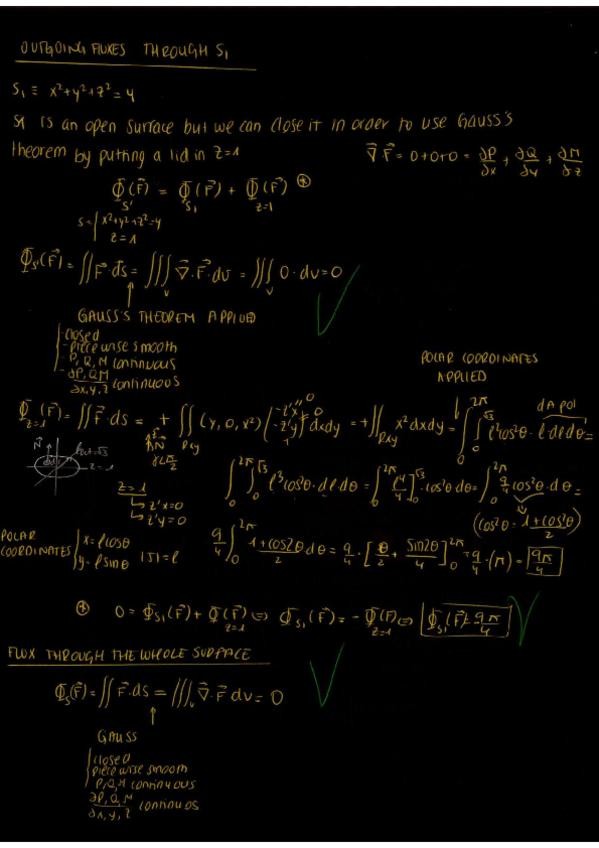 OUTGOING FLUXES THROUGH S₁
S₁ ≡ x²+y²+z²=4
S₁ is an open surface but we can close it in order to use Gauss's
theorem by putting a lid in z=1
∇·F = 0+0+0 = ∂P/∂x + ∂Q/∂y + ∂M/∂z
Φ(F) = Φ(F) + Φ(F) ⊛
S' S₁ z=1
S={x²+y²+z²=4
z=1
Φ_S'(F) = ∬F·ds = ∭_V ∇·F·dv = ∭_V 0·dv=0
GAUSS'S THEOREM APPLIED
- closed
- piece wise smooth
- P, Q, M continuous
- ∂P,Q,M/∂x,y,z continuous
POLAR COORDINATES
APPLIED
Φ_{z=1}(F) = ∬F·ds = + ∬_{Rxy} (y, 0, x²) (-z'x -z'y 1) dxdy = +∬_{Rxy} x²dxdy = ∫₀^{2π} ∫₀^{√3} ρ²cos²θ · ρdρdθ =
0
0
dA pol
N
γ<π/2
N
z=1
z=1
↳ z'x=0
↳ z'y=0
∫₀^{2π} ∫₀^{√3} ρ³cos²θ·dρdθ = ∫₀^{2π} [ρ⁴/4]₀^{√3}·cos²θdθ = ∫₀^{2π} 9/4 cos²θdθ =
(cos²θ = 1+cos2θ/2)
POLAR COORDINATES { x=ρcosθ
y=ρsinθ |J|=ρ
9/4 ∫₀^{2π} 1+cos2θ/2 dθ = 9/4·[θ/2 + sin2θ/4]₀^{2π} = 9/4·(π) = 9π/4
⊛ 0 = Φ_{S₁}(F) + Φ_{z=1}(F) ⇔ Φ_{S₁}(F) = -Φ_{z=1}(F) ⇔ Φ_{S₁}(F) = -9π/4
FLUX THROUGH THE WHOLE SURFACE
Φ_S(F) = ∬F·ds = ∭_V ∇·F dv = 0
GAUSS
closed
piece wise smooth
P, Q, M continuous
∂P,Q,M/∂x,y,z continuos